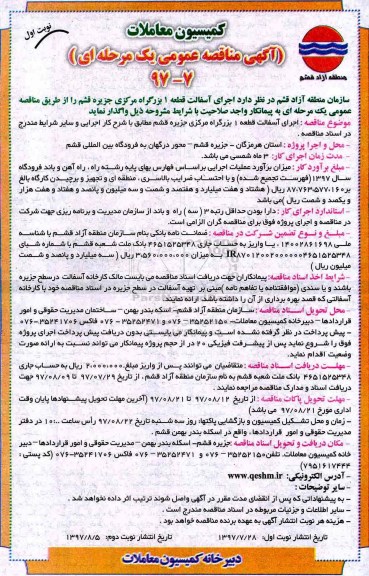 نوبت اول
کمیسیون معاملات
(آگهی مناقصه عمومی یک مرحله ای)
۷-۹۷
منطقه آزاد قشم
سازمان منطقه آزاد قشم در نظر دارد اجرای آسفالت قطعه ۱ بزرگراه مرکزی جزیره قشم را از طریق مناقصه
عمومی یک مرحله ای به پیمانکار واجد صلاحیت با شرایط مشروحه ذیل واگذار نماید
موضوع مناقصه: اجرای آسفالت قطعه ۱ بزرگراه مرکزی جزیره قشم مطابق با شرح کار اجرایی و سایر شرایط مندرج
در اسناد مناقصه.
- محل و اجرا پروژه: استان هرمزگان - جزیره قشم - محور درگهان به فرودگاه بین المللی قشم
- مدت زمان اجرای کار: ۳ ماه شمسی می باشد.
- مبلغ برآورد کار: میزان برآورد عملیات اجرایی براساس فهارس بهای پایه رشته راه، راه آهن و باند فرودگاه
سال ۱۳۹۷ (فهرست تجمیع شده) و با احتساب ضرایب بالاسری، منطقه ای و تجهیز و برچیدن کارگاه بالغ
بر ۸۷،۷۶۳،۵۷۷،۱۶۰ ریال (هشتاد و هفت میلیارد و هفتصد و شصت و سه میلیون و پانصد و هفتاد و هفت هزار
و یکصد و شصت ریال) می باشد
- استاندارد اجرای کار: دارا بودن حداقل رتبه ۳ (سه) راه و باند از سازمان مدیریت و برنامه ریزی جهت شرکت
در مناقصه و اجرای پروژه فوق برای مناقصه گران الزامی است.
- مبلغ و نوع تضمین شرکت در مناقصه: ضمانت نامه بانکی بنام سازمان منطقه آزاد قشم با شناسه
ملی ۱۴۰۰۲۸۶۱۶۹۸، یا واریز به حساب جاری ۴۶۵۱۵۲۵۳۴۸ بانک ملت شعبه قشم با شماره شبای
به میزان ۳،۵۶۰،۰۰۰،۰۰۰ ریال (سه میلیارد و پانصد و شصت
میلیون ریال)
- شرایط اخذ اسناد مناقصه: پیمانکاران جهت دریافت اسناد مناقصه می بایست مالک کارخانه آسفالت در سطح جزیره
باشند و یا سندی (موافقتنامه یا تفاهم نامه) مبنی بر تهیه آسفالت در سطح جزیره در اسناد مناقصه خود با کارخانه
آسفالتی که قصد بهره برداری از آن را داشته باشد، ارائه نمایند.
محل تحویل اسناد مناقصه: سازمان منطقه آزاد قشم- اسکله بندر بهمن - ساختمان مدیریت حقوقی و امور
قراردادها - دبیرخانه کمیسیون معاملات، ۳۵۲۵۲۱۵۰-۰۷۶ و ۳۵۲۵۲۴۷۱-۰۷۶ فاکس ۳۵۲۴۱۷۰۶-۰۷۶
- پیش پرداخت در نظر گرفته نشده است و پیمانکار می بایستی بدون دریافت پیش پرداخت اجرای پروژه
فوق را شروع نماید پس از پیشرفت فیزیکی ۲۰ در از حجم پروژه پیمانکار می تواند نسبت به ارائه صورت
وضعیت اقدام نماید.
- مهلت دریافت اسناد مناقصه: متقاضیان می توانند پس از واریز مبلغ ۲،۰۰۰،۰۰۰ ریال به حساب جاری
۴۶۵۱۵۲۵۳۴۸ بانک ملت شعبه قشم به نام سازمان منطقه آزاد قشم، از تاریخ ۹۷/۰۷/۲۹ تا ۹۷/۰۸/۰۹ جهت
دریافت اسناد و مدارک مناقصه مراجعه نمایند.
- مهلت تحویل پاکات مناقصه: از تاریخ ۹۷/۰۸/۱۲ تا ۹۷/۰۸/۲۱ (آخرین مهلت تحویل پیشنهادها پایان وقت
اداری مورخ ۹۷/۰۸/۲۱ می باشد)
- زمان و محل تشکیل کمیسیون و بازگشایی پاکتها: روز سه شنبه تاریخ ۹۷/۰۸/۲۲ رأس ساعت ۱۰:۰۰ در دفتر
مدیریت حقوقی و امور قراردادها، واقع در اسکله بندر بهمن قشم.
- مکان دریافت و تحویل اسناد مناقصه: جزیره قشم- اسکله بندر بهمن - مدیریت حقوقی و امور قراردادها - دبیر
خانه کمیسیون معاملات، تلفن ۳۵۲۵۲۱۵۰-۰۷۶ و ۳۵۲۵۲۴۷۱-۰۷۶ فاکس ۳۵۲۴۱۷۰۶-۰۷۶ (کد پستی:
۷۹۵۱۶۱۷۴۴۴)
- آدرس الکترونیکی: www.qeshm.ir
- سایر توضیحات:
- به پیشنهاداتی که پس از انقضای مدت مقرر در آگهی واصل شوند ترتیب اثر داده نخواهد شد.
- سایر اطلاعات و جزئیات مربوطه در اسناد مناقصه مندرج است.
- هزینه هر نوبت انتشار آگهی به عهده برنده مناقصه خواهد بود.
تاریخ انتشار نوبت اول: ۱۳۹۷/۷/۲۸ تاریخ انتشار نوبت دوم: ۱۳۹۷/۸/۵
دبیرخانه کمیسیون معاملات